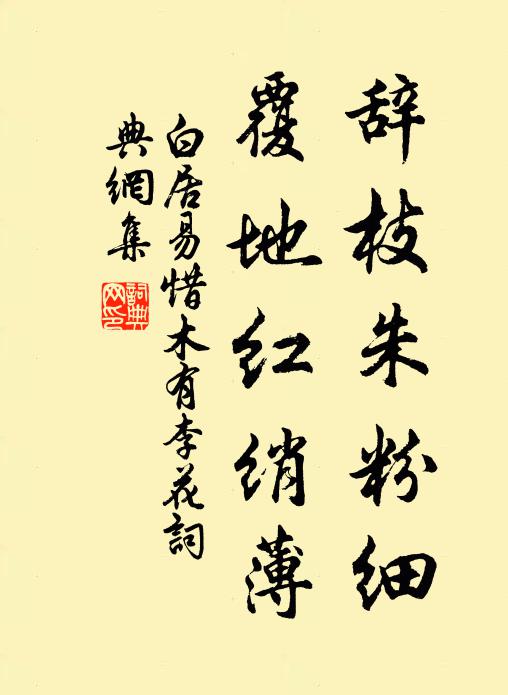 辞枝朱粉细
覆地红绡薄
白居易惜木有李花詞
典網集
詞典
网印